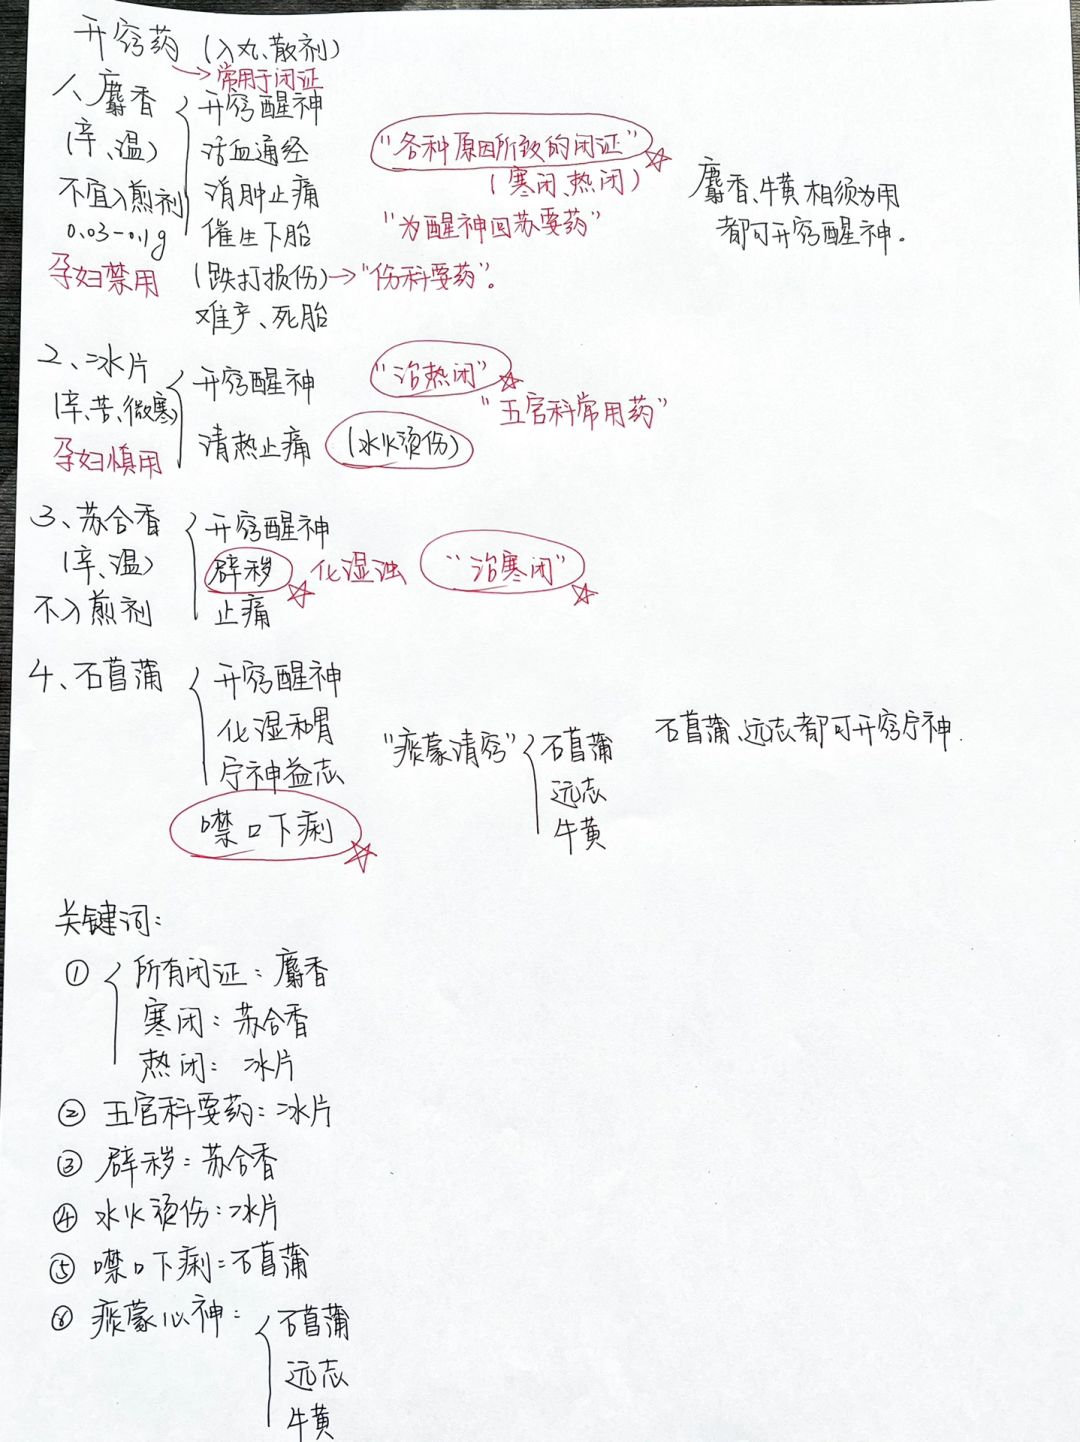 开窍药 (入丸、散剂)
→常用于闭证
1、麝香
(辛、温)
不宜入煎剂
0.03-0.1g
孕妇禁用
开窍醒神
活血通经
消肿止痛
催生下胎
(跌打损伤)→"伤科要药"。
难产、死胎
"各种原因所致的闭证"☆
(寒闭、热闭)
"为醒神回苏要药"
麝香、牛黄相须为用
都可开窍醒神.
2、冰片
(辛、苦、微寒)
孕妇慎用
开窍醒神
清热止痛 (水火烫伤)
"治热闭"☆
"五官科常用药"
3、苏合香
(辛、温)
不入煎剂
开窍醒神
辟秽☆ 化湿浊
止痛
"治寒闭"☆
4、石菖蒲
开窍醒神
化湿和胃
宁神益志
噤口下痢☆
"痰蒙清窍" 石菖蒲
远志
牛黄
石菖蒲、远志都可开窍宁神.
关键词:
① 所有闭证:麝香
寒闭:苏合香
热闭: 冰片
② 五官科要药:冰片
③ 辟秽:苏合香
④ 水火烫伤:冰片
⑤ 噤口下痢:石菖蒲
⑥ 痰蒙心神: 石菖蒲
远志
牛黄